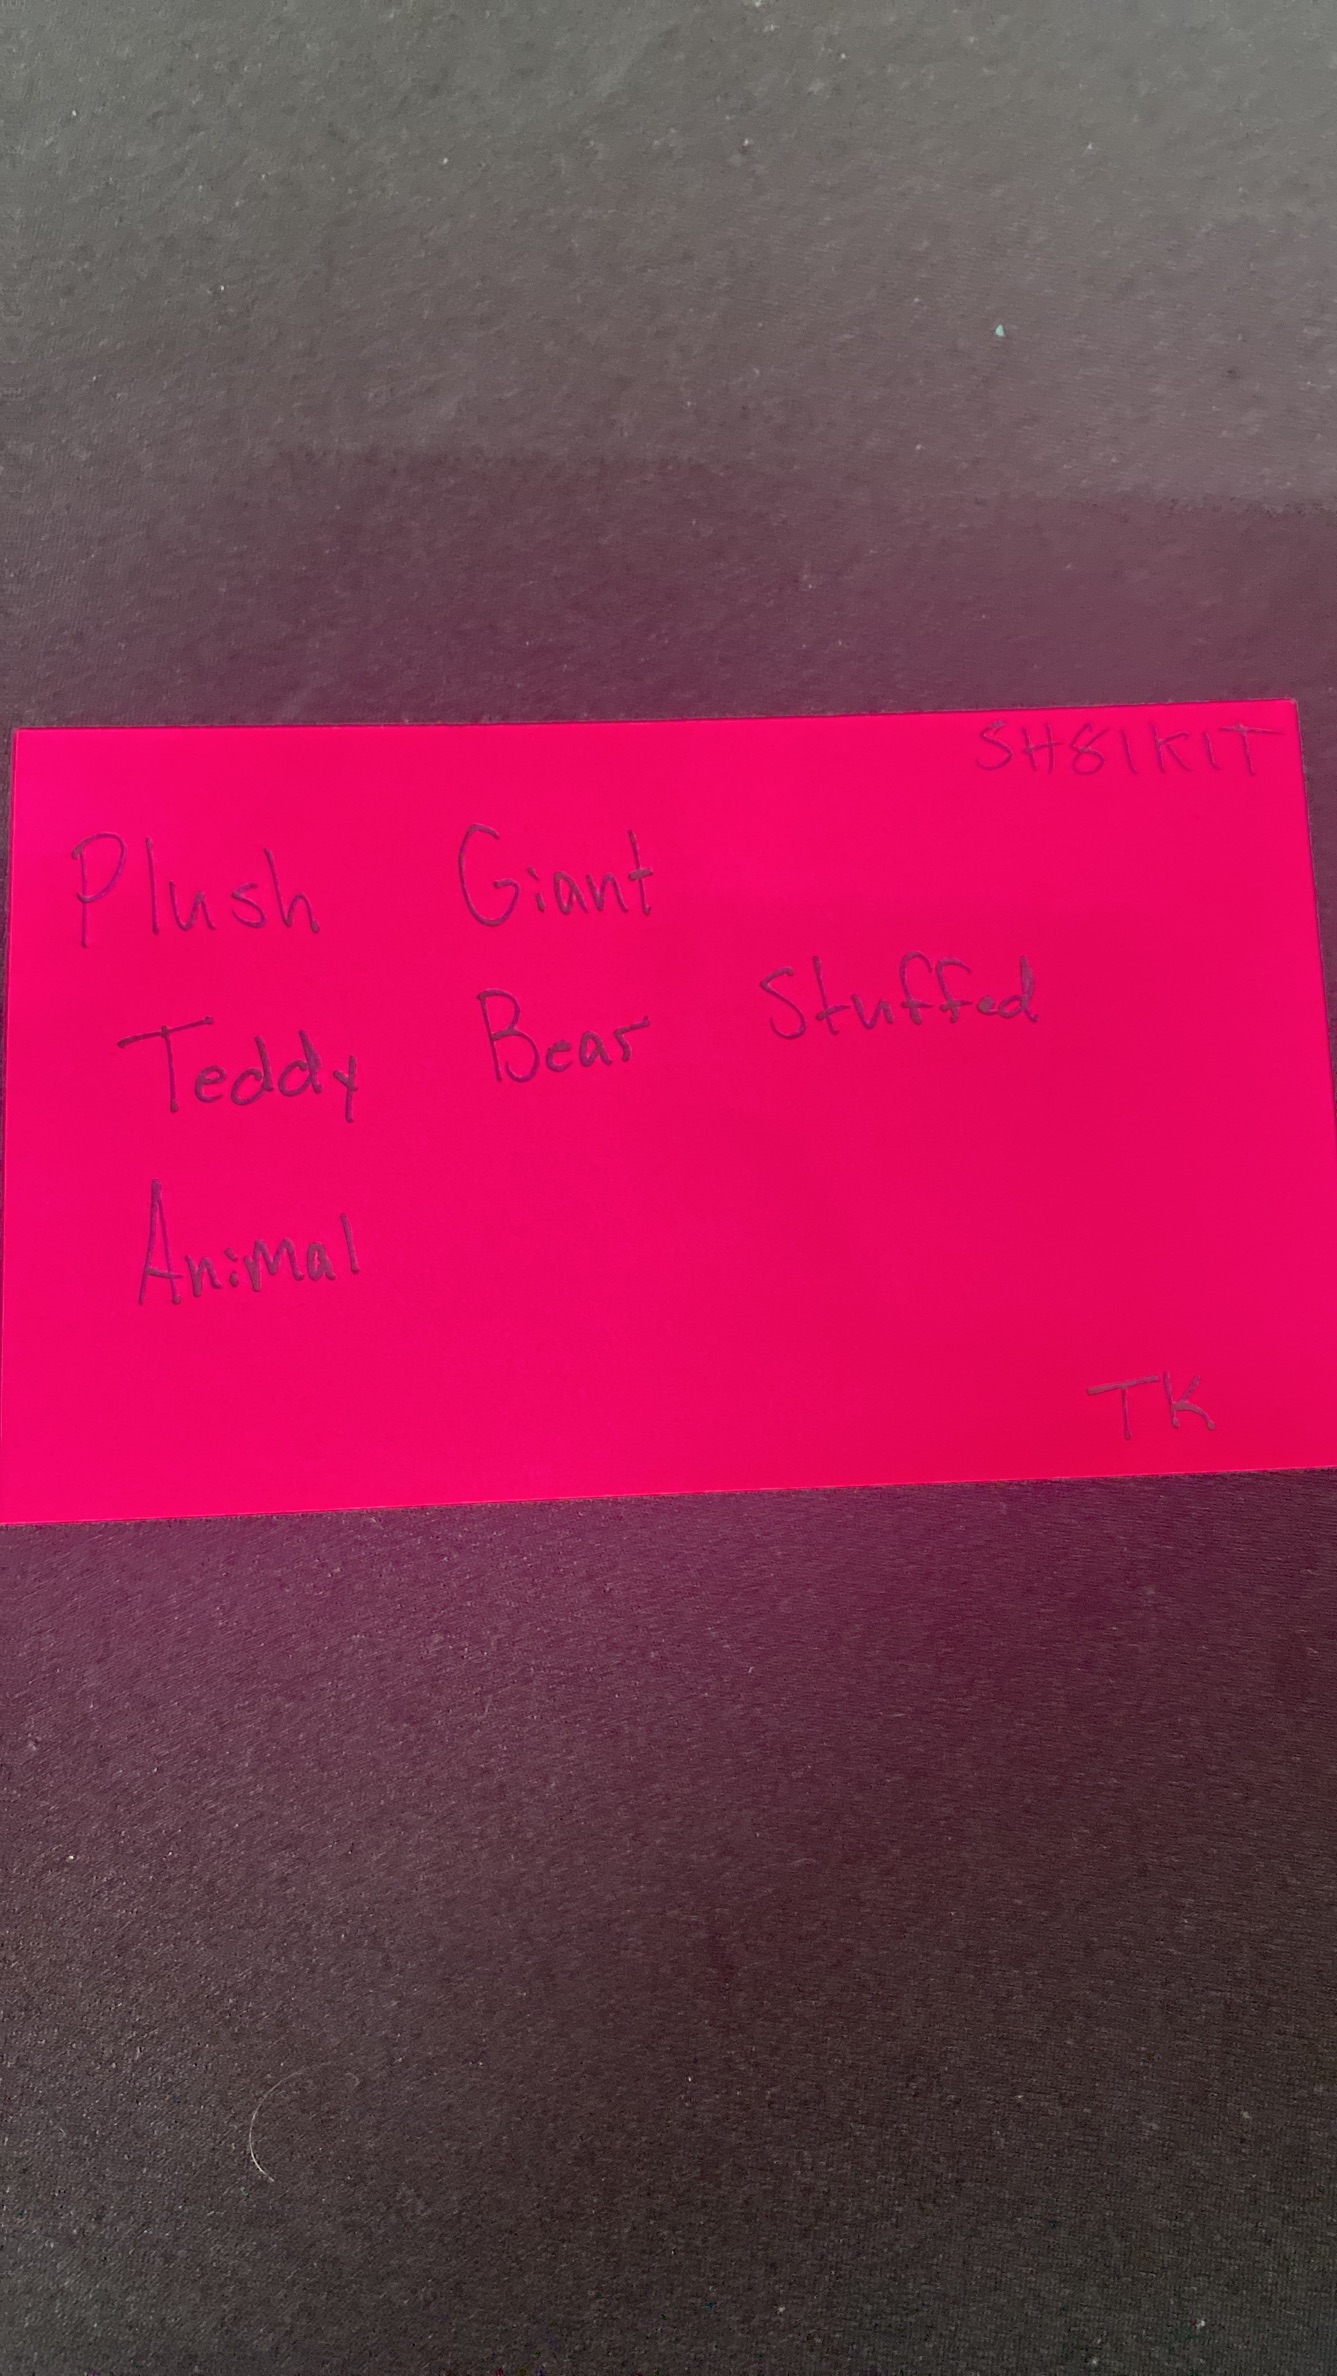 SH81KIT
Plush Giant
Teddy Bear Stuffed
Animal
TK